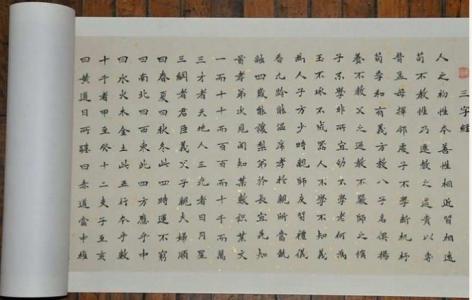 三字經
人之初性本善性相近習相遠
苟不教性乃遷教之道貴以專
昔孟母擇鄰處子不學斷機杼
荀季和有義方教八子名俱揚
養不教父之過教不嚴師之惰
子不學非所宜幼不學老何為
玉不琢不成器人不學不知義
為人子方少時親師友習禮儀
香九齡能溫席孝於親所當執
融四歲能讓梨弟於長宜先知
首孝弟次見聞知某數識某文
一而十十而百百而千千而萬
三才者天地人三光者日月星
三綱者君臣義父子親夫婦順
曰春夏曰秋冬此四時運不窮
曰南北曰西東此四方應乎中
曰水火木金土此五行本乎數
十干者甲至癸十二支子至亥
曰黃道日所躔曰赤道當中權